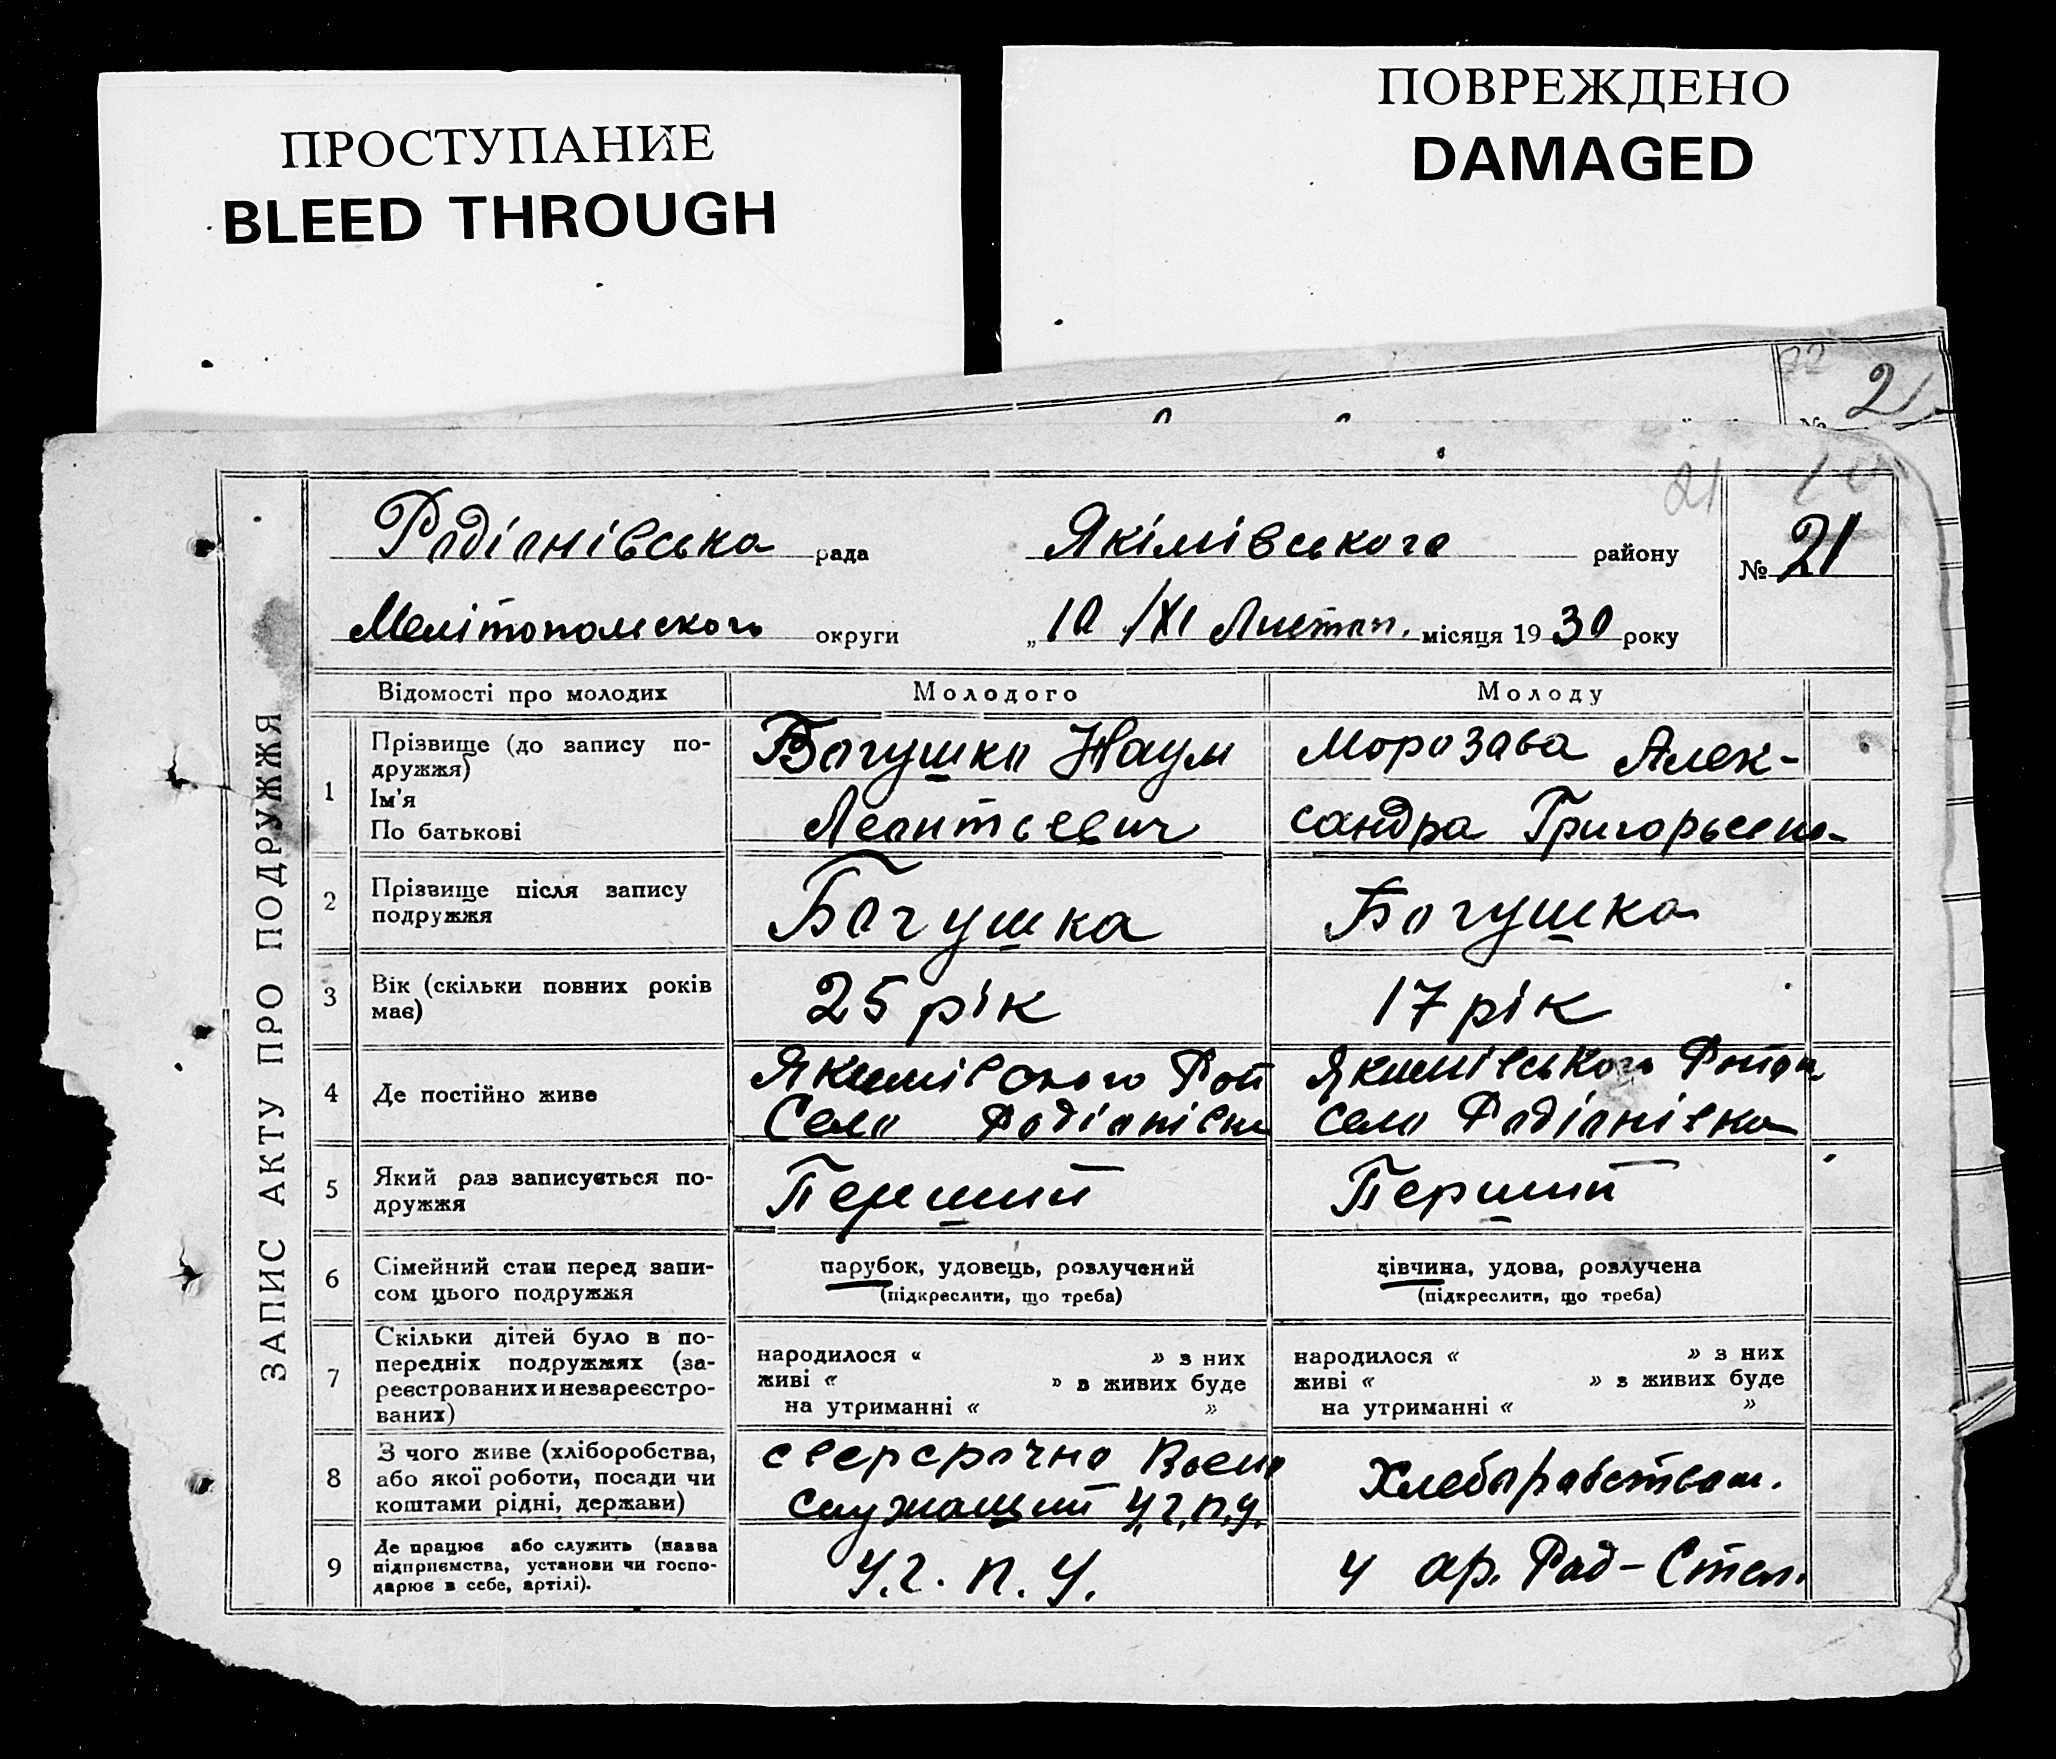 ПРОСТУПАНИЕ
BLEED THROUGH
ПОВРЕЖДЕНО
DAMAGED
22
№ 21
21
10
ЗАПИС АКТУ ПРО ПОДРУЖЖЯ
Радіанівська рада Якімівського району
№ 21
Мелітопольского округи „ 10 /XI Листоп. місяця 1930 року
Відомості про молодих Молодого Молоду
1 Прізвище (до запису по-
дружжя)
Ім'я
По батькові
Богушко Наум
Леонтьевич
Морозова Алек-
сандра Григорьевн-
2 Прізвище після запису
подружжя
Богушка
Богушка
3 Вік (скільки повних років
має)
25 рік
17 рік
4 Де постійно живе
Якимівского Рай
Село Радіанівка
Якимівського Район
село Радіанівка
5 Який раз записується по-
дружжя
Перший
Перший
6 Сімейний стан перед запи-
сом цього подружжя
парубок, удовець, розлучений
(підкреслити, що треба)
дівчина, удова, розлучена
(підкреслити, що треба)
7 Скільки дітей було в по-
передніх подружжях (за-
реєстрованих и незареєстро-
ваних)
народилося „ " з них
живі „ " в живих буде
на утриманні „ "
народилося „ " з них
живі „ " з живих буде
на утриманні „ "
8 З чого живе (хліборобства,
або якої роботи, посади чи
коштами рідні, держави)
сверсрочно Воено
служащий У.Г.П.У.
Хлеборабством.
9 Де працює або служить (назва
підприємства, установи чи госпо-
дарює в себе, артілі).
У.Г.П.У.
У ар. Рад-Степ.